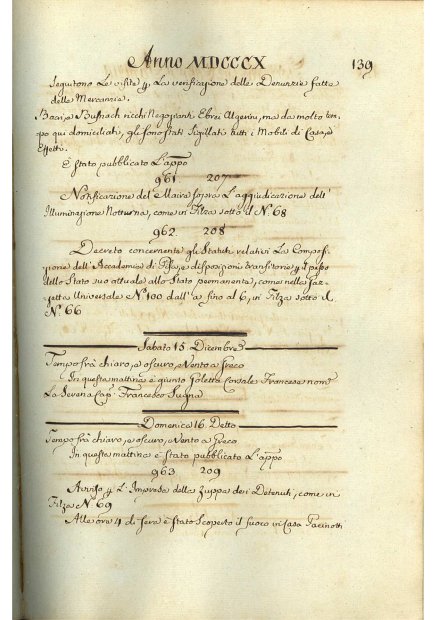 Anno MDCCCX 139
Seguitono Le visite p. La verificazione delle Denunzie fatte
delle Mercanzie.
Bacri, e Busnach ricchi Negozianti Ebrei Algerini, ma da molto tem-
po qui domiciliati, gli sono stati Sigillati tutti i Mobili di Casa, e
Effetti.
È Stato pubblicato L'appo
961 207
Notificazione del Maire sopra L'aggiudicazione dell'
Illuminazione Notturna, come in Filza sotto il N. 68
962. 208
Decreto concernente gli Statuti relativi La Compo-
sizione dell'Accademia di Pisa, e disposizioni transitorie p. il passo
dello Stato suo attuale allo Stato permanente, come nella Gaz-
zetta Universale N. 100 dall' a fino al 6, in Filza sotto il
N. 66
Sabato 15 Dicembre
Tempo frà chiaro, e oscuro, Vento a Greco
In questa mattina è giunto Goletta Corsale Francese nom
La Serena Cap. Francesco Sugna
Domenica 16 Detto
Tempo frà chiaro, e oscuro, Vento a Greco
In questa mattina è stato pubblicato L'appo
963 209
Avviso p. L'Impresa della Zuppa dei Detenuti, come in
Filza N. 69
Alle ore 4 di sera è Stato Scoperto il fuoco in Casa